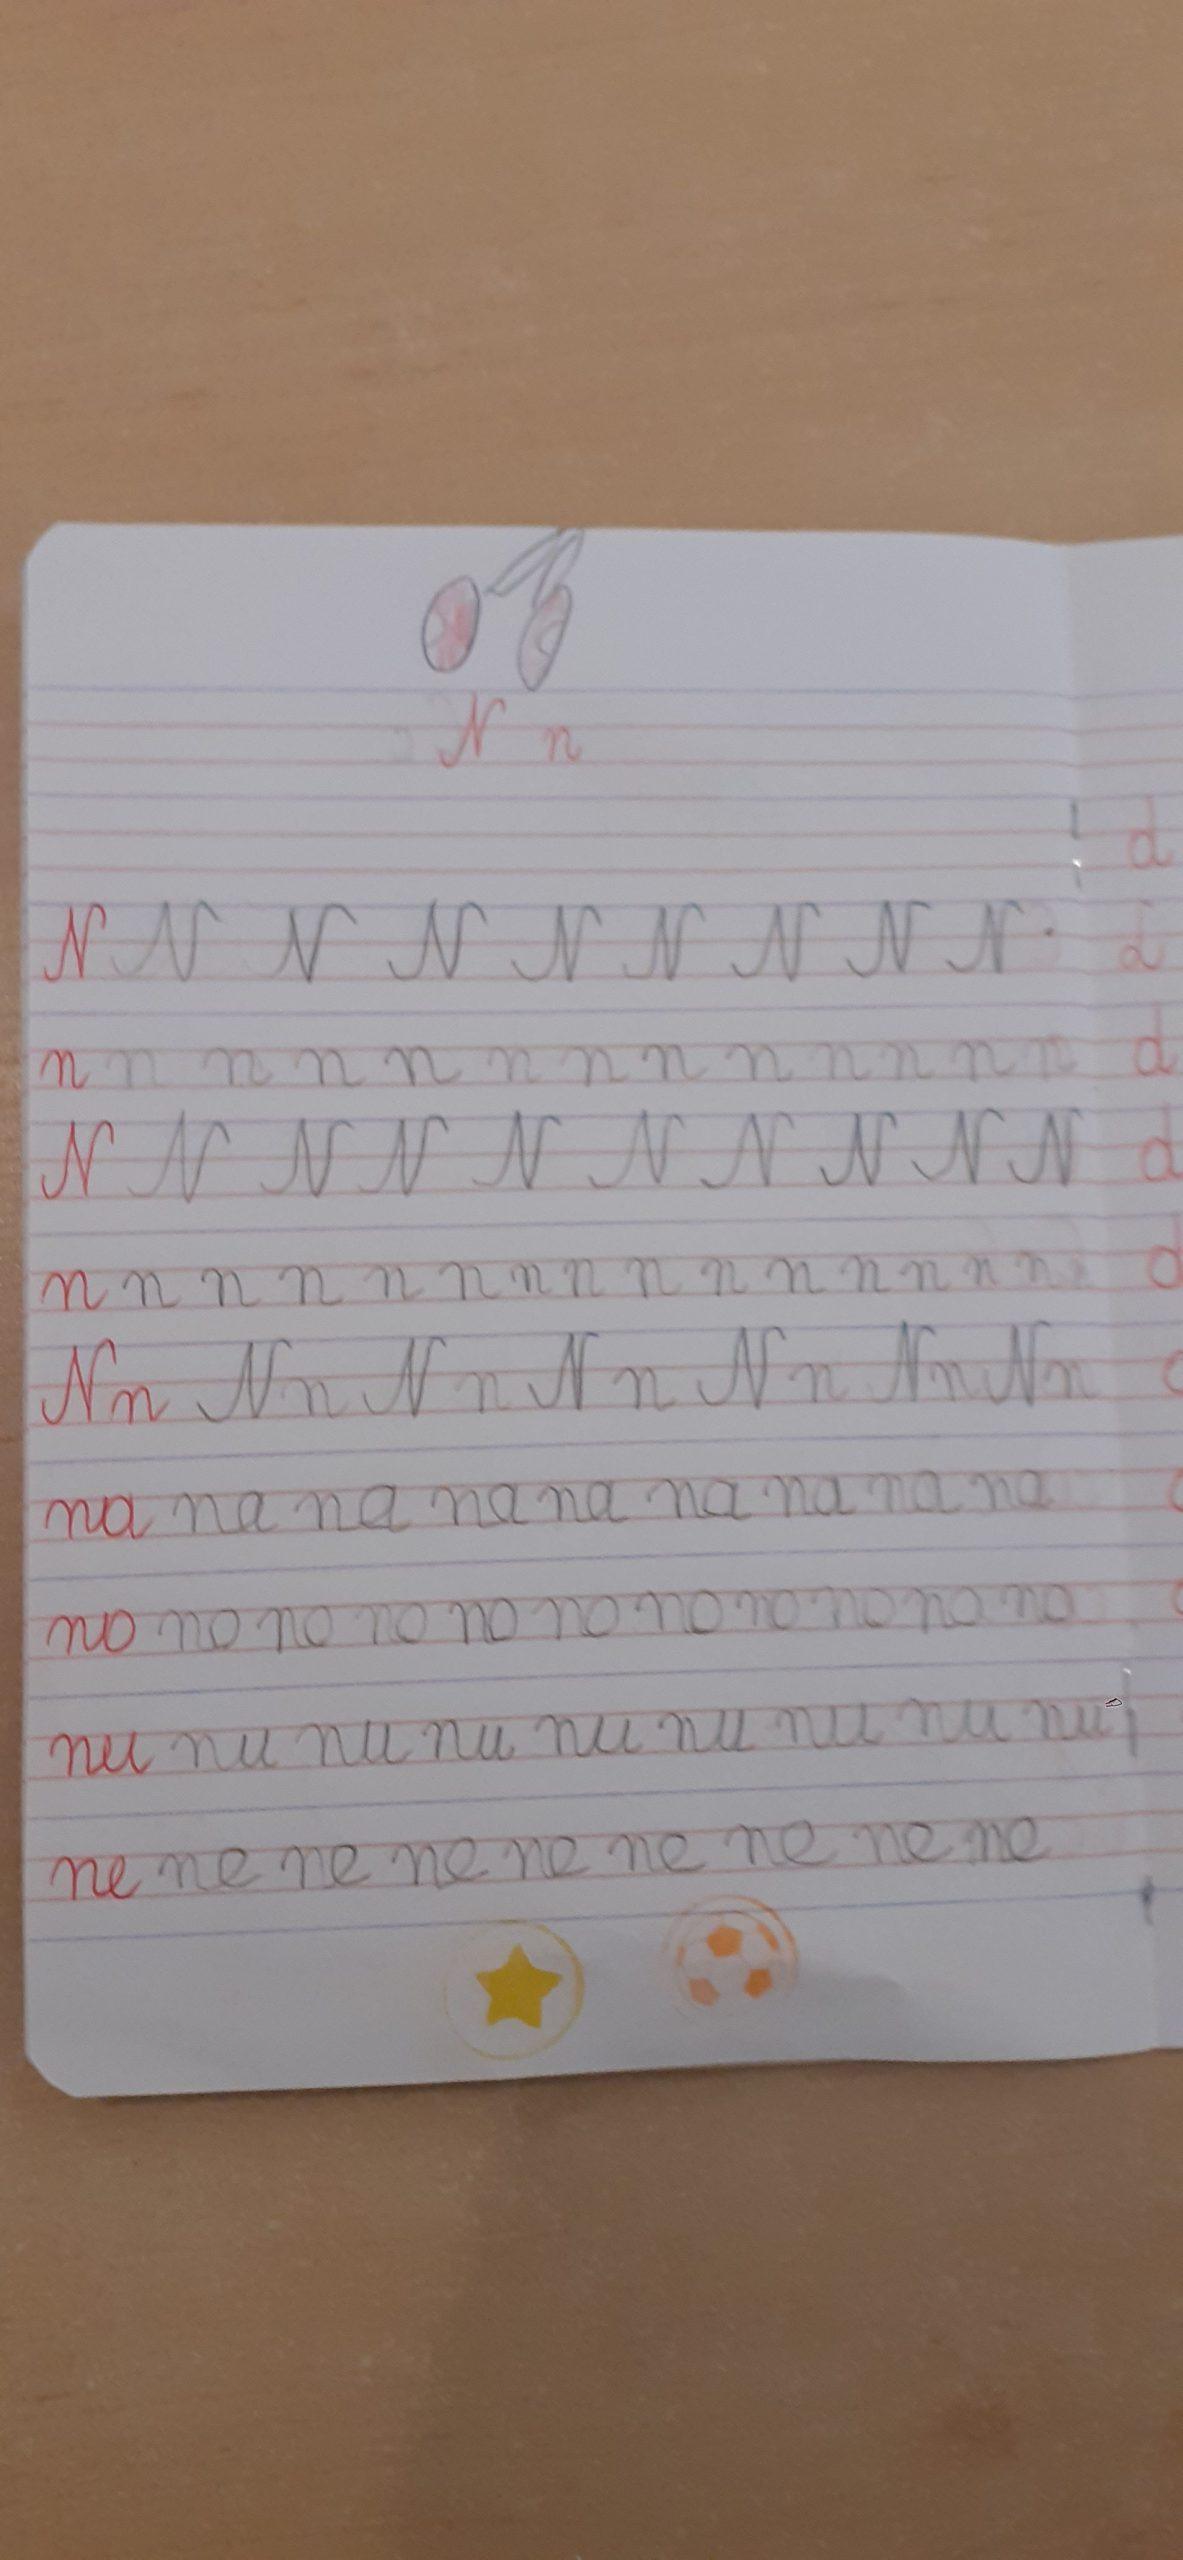 N n
N N N N N N N N N
n n n n n n n n n n n n n
N N N N N N N N N N
n n n n n n n n n n n n n n n
Nn Nn Nn Nn Nn Nn Nn
na na na na na na na na na
no no no no no no no no no no no
nu nu nu nu nu nu nu nu nu
ne ne ne ne ne ne ne ne ne